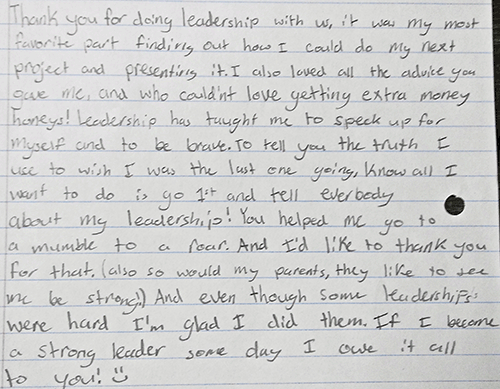 Thank you for doing leadership with us, it was my most
favorite part finding out how I could do my next
project and presenting it. I also loved all the advice you
gave me, and who could'nt love getting extra money
honeys! Leadership has taught me to speek up for
myself and to be brave. To tell you the truth I
use to wish I was the last one going, Know all I
want to do is go 1st and tell everbody
about my leadership! You helped me go to
a mumble to a roar. And I'd like to thank you
for that. (also so would my parents, they like to see
me be strong!) And even though some leaderships
were hard I'm glad I did them. If I become
a strong leader some day I owe it all
to you! :)